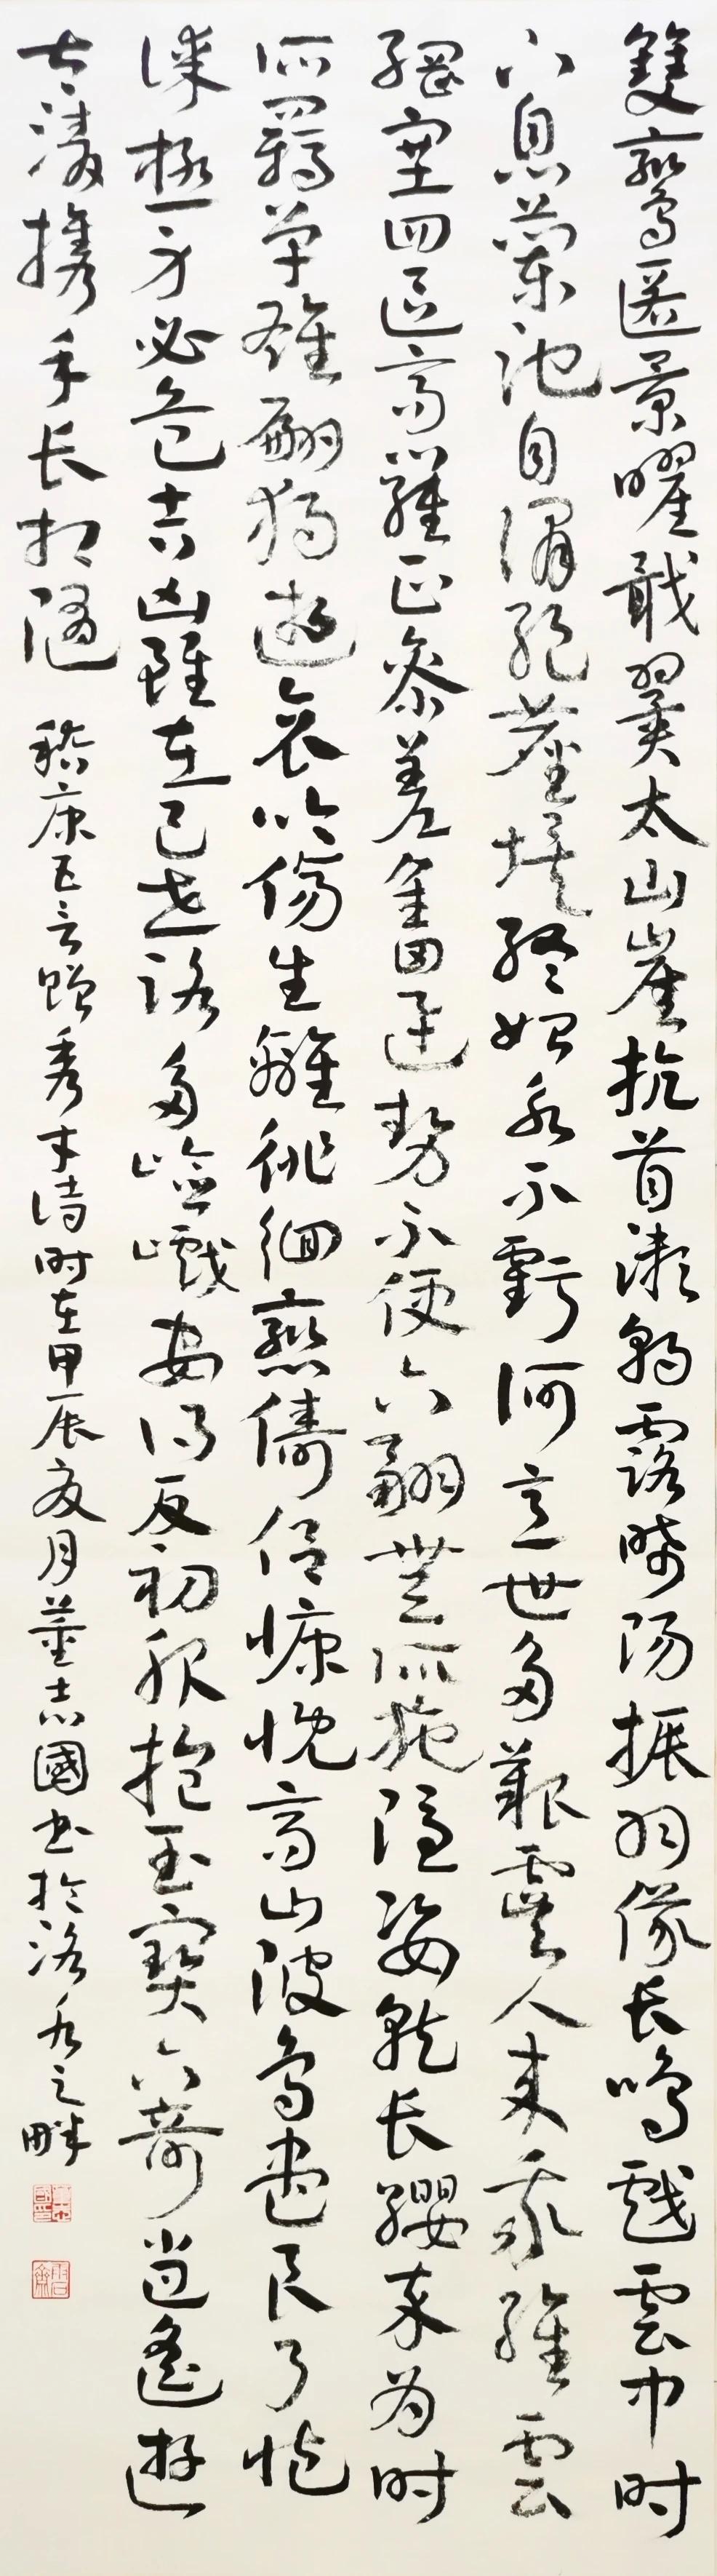 雙鸞匿景曜戢翼太山崖抗首漱朝露晞陽振羽儀长鳴戲雲中时
下息蘭池自謂絕塵埃終始永不虧何意世多艱虞人来我維雲
網塞四區高羅正參差奮迅勢不便六翮無所施隱姿就长纓卒为时
所羈單雄翩獨逝哀吟傷生離徘徊戀儔侶慷慨高山陂鳥盡良弓藏
謀極身必危吉凶雖在己世路多嶮巇安得反初服抱玉寶六奇逍遙遊
太清攜手长相隨 嵇康五言贈秀才詩时在甲辰夏月董志國书於洛水之畔